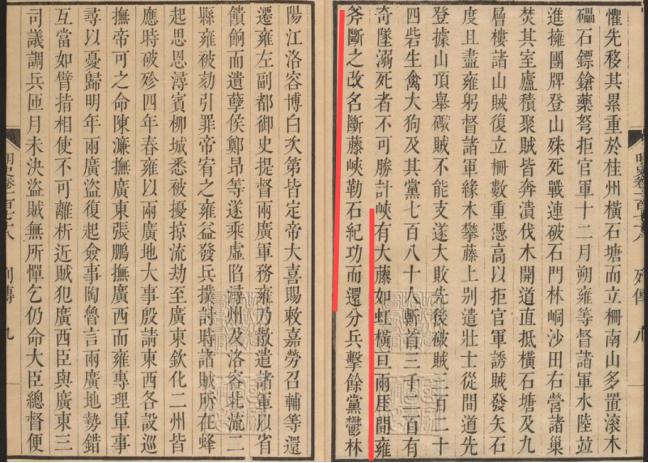 明史卷一百七十八
列傳
懼先移其累重於桂州橫石塘而立柵南山多置滾木
礧石鏢鎗藥弩拒官軍十二月朔雍等督諸軍水陸並
進擁團牌登山殊死戰連破石門林峒沙田右營諸巢
焚其室廬積聚賊皆奔潰伐木開道直抵橫石塘及九
層樓諸山賊復立柵數重憑高以拒官軍誘賊發矢石
度且盡雍躬督諸軍緣木攀藤上別遣壯士從間道先
登據山頂舉礮賊不能支遂大敗先後破賊三百二十
四砦生禽大狗及其黨七百八十人斬首三千二百有
奇墜溺死者不可勝計峽有大藤如虹橫亘兩厓間雍
斧斷之改名斷藤峽勒石紀功而還分兵擊餘黨鬱林
陽江洛容博白次第皆定帝大喜賜敕嘉勞召輔等還
遷雍左副都御史提督兩廣軍務雍乃散遣諸軍以省
饋餉而遺孽侯鄭昂等遂乘虛陷潯州及洛容北流二
縣雍被劾引罪帝宥之雍益發兵撲討時諸賊所在蜂
起思恩潯賓柳城悉被擾掠流劫至廣東欽化二州皆
應時破殄四年春雍以兩廣地大事殷請東西各設巡
撫帝可之命陳濂撫廣東張鵬撫廣西而雍專理軍事
尋以憂歸明年兩廣盜復起僉事陶魯言兩廣地勢錯
互當如臂指相使不可離析近賊犯廣西臣與廣東三
司議調兵匝月未決盜賊無所憚乞仍命大臣總督便
明史卷一百七十八
列傳
九